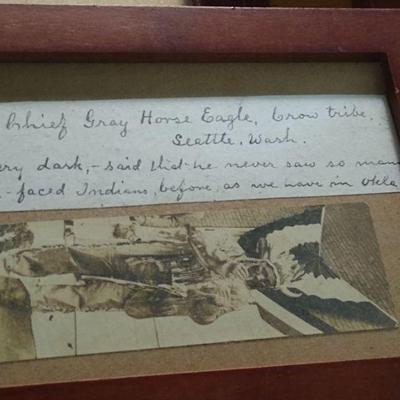 Chief Gray Horse Eagle, Crow tribe,
Seattle, Wash.
ery dark, - said that he never saw so man
- faced Indians, before, as we have in Okla